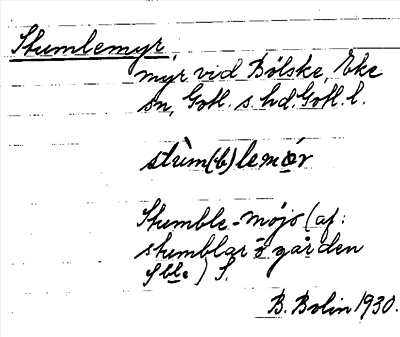 Stumlemyr,
myr vid Bölske, Eke
sn, Gotl. s. hd. Gotl. l.
stùm(b)lemør
Stumble-möjo (af:
stumblar i gården
S. B. Bolin 1930.